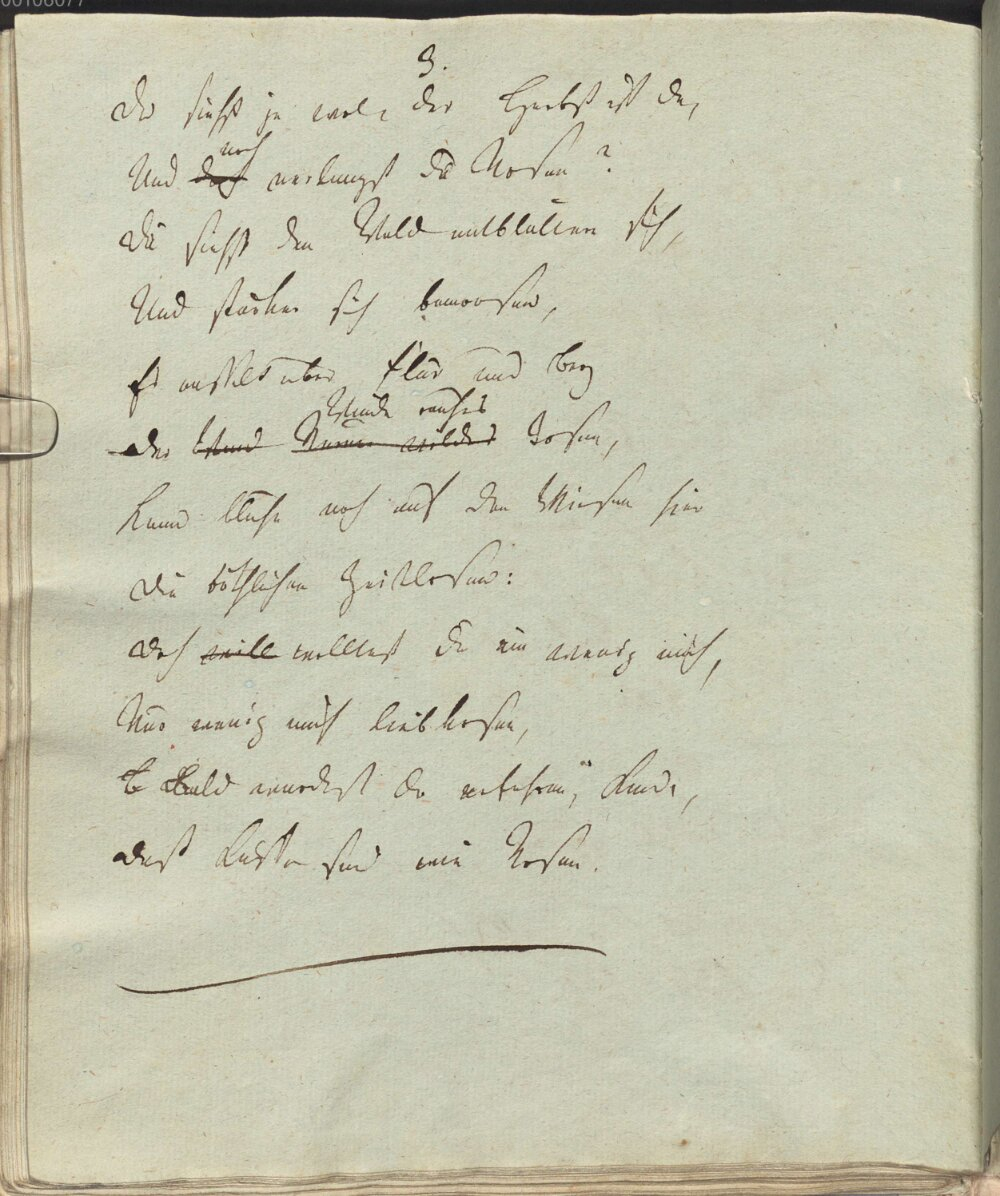 3.
Du siehst ja wol, der Herbst ist da,
Und doch noch verlangst du Rosen?
Du siehst den Wald entblättern sich,
Und stärker sich bemoosen,
Es rasselt über Flur und Berg
Der Wind Sturm wildes Winde rauhes Tosen,
Kaum blühn noch auf den Wiesen hier
Die röthlichen Zeitlosen:
Doch will wolltest du ein wenig mich,
Nur wenig mich liebkosen,
B Bald würdest du verstehn, Kind,
Daß Küsse sind wie Rosen.